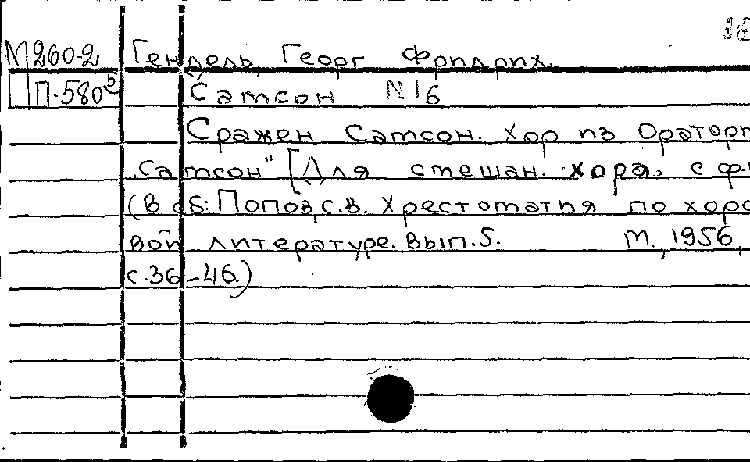 М260-2 Гендель, Георг Фридрих.
П-580 Самсон N16
Сражен Самсон. Хор из Оратор
"Самсон" [Для смешан. хора, с ф-
(В сб: Попов, С.В. Хрестоматия по хоро
вой литературе. Вып. 5. М., 1956,
с. 36-46.)